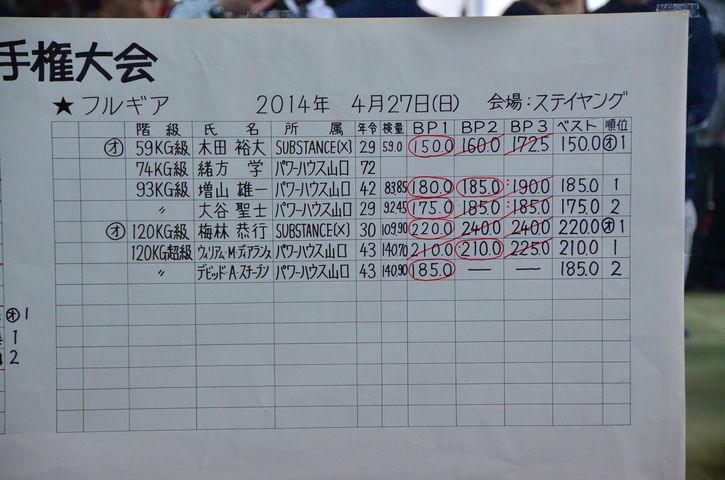 手権大会
★フルギア 2014年 4月27日(日) 会場:ステイヤング
階級 氏名 所属 年令 検量 BP1 BP2 BP3 ベスト 順位
㋔ 59KG級 木田 裕大 SUBSTANCE(X) 29 59.0 150.0 160.0 172.5 150.0 ㋔1
74KG級 緒方 学 パワーハウス山口 72
93KG級 増山 雄一 パワーハウス山口 42 83.85 180.0 185.0 190.0 185.0 1
〃 大谷 聖士 パワーハウス山口 29 92.45 175.0 185.0 185.0 175.0 2
㋔ 120KG級 梅林 恭行 SUBSTANCE(X) 30 109.90 220.0 240.0 240.0 220.0 ㋔1
120KG超級 ウィリアム・M・ディアランス パワーハウス山口 43 140.70 210.0 210.0 225.0 210.0 1
〃 デビッド・A・スチーブン パワーハウス山口 43 140.90 185.0 — — 185.0 2
㋔1
1
2